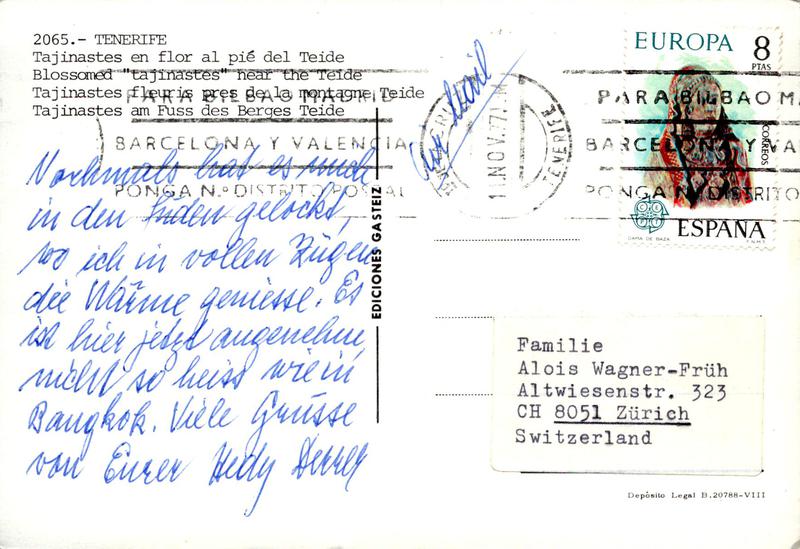 2065.- TENERIFE
Tajinastes en flor al pié del Teide
Blossomed "tajinastes" near the Teide
Tajinastes fleuris pres de la montagne Teide
Tajinastes am Fuss des Berges Teide
PARA BILBAO MADRID
BARCELONA Y VALENCIA
PONGA N.º DISTRITO POSTAL
Nochmals hat es mich
in den Süden gelockt,
wo ich in vollen Zügen
die Wärme geniesse. Es
ist hier jetzt angenehm,
nicht so heiss wie in
Bangkok. Viele Grüsse
von Eurer Hedy
EDICIONES GASTEIZ
Air Mail
11.NOV.77
TENERIFE
EUROPA 8
PTAS
CORREOS
ESPAÑA
DAMA DE BAZA F.N.M.T.
PARA BILBAO M
BARCELONA Y VA
PONGA N.º DISTRITO
Familie
Alois Wagner-Früh
Altwiesenstr. 323
CH 8051 Zürich
Switzerland
Depósito Legal B.20788-VIII